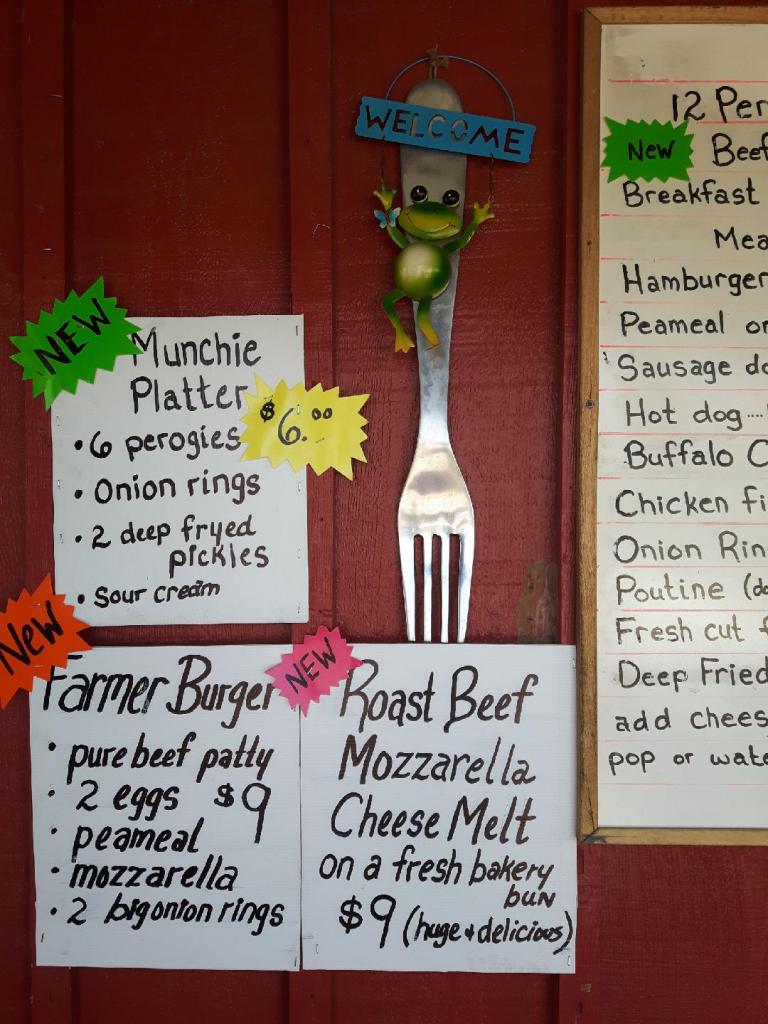 WELCOME
NEW
Munchie
Platter
$6.00
• 6 perogies
• Onion rings
• 2 deep fryed
pickles
• Sour cream
New
Farmer Burger
• pure beef patty
• 2 eggs $9
• peameal
• mozzarella
• 2 big onion rings
NEW
Roast Beef
Mozzarella
Cheese Melt
on a fresh bakery
bun
$9 (huge + delicious)
12 Per
New Beef
Breakfast
Mea
Hamburger
Peameal or
Sausage do
Hot dog....
Buffalo C
Chicken fi
Onion Rin
Poutine (do
Fresh cut f
Deep Fried
add chees
pop or wate